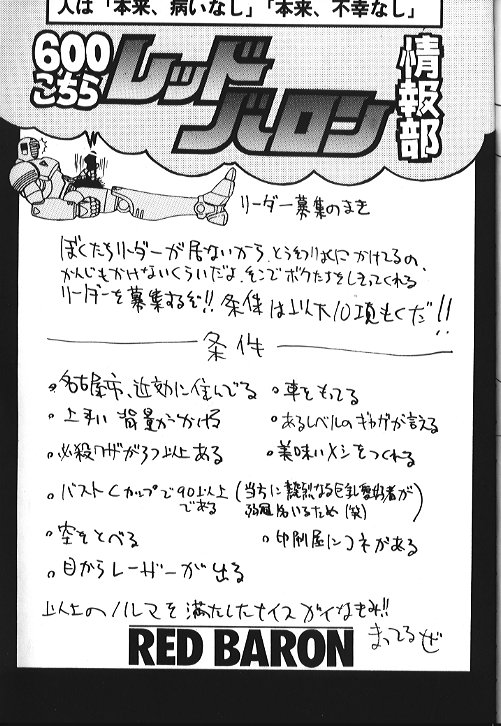 人は「本来、病いなし」「本来、不幸なし」
600
こちら
レッド
バロン
情報部
リーダー募集のまき
ぼくたちリーダーが居ないから、
かんじもかけないくらいだよ、そこでボクたちを
リーダーを募集するぞ!!条件は以下10項もくだ!!
条件
・名古屋市、近効に住んでる
・車をもってる
・上手い背景がかける
・あるレベルのギャグが言える
・必殺ワザが3つ以上ある
・美味いメシをつくれる
・バストCカップで90以上
である
(当方に
いるため(笑))
・空をとべる
・印刷屋にコネがある
・目からレーザーが出る
以上のノルマを満たしたナイスガイなきみ!!
まってるぜ
RED BARON